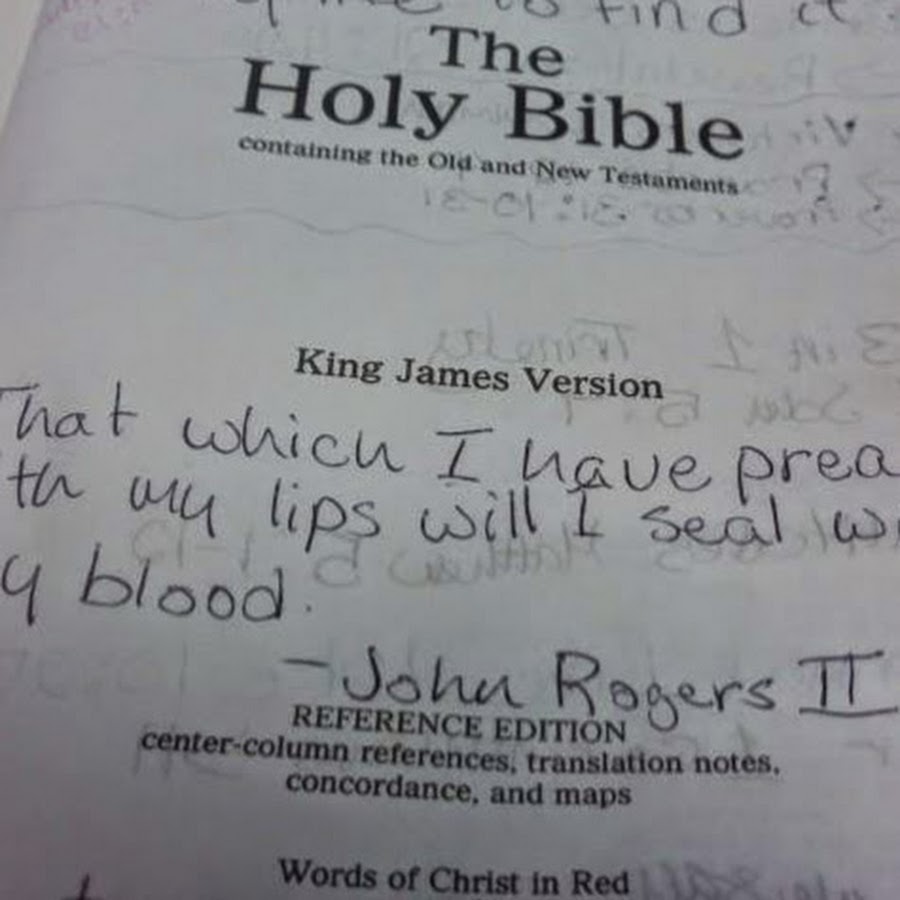 to find it.
The
Holy Bible
containing the Old and New Testaments
King James Version
That which I have prea
th my lips will I seal w
y blood.
- John Rogers II
REFERENCE EDITION
center-column references, translation notes,
concordance, and maps
Words of Christ in Red